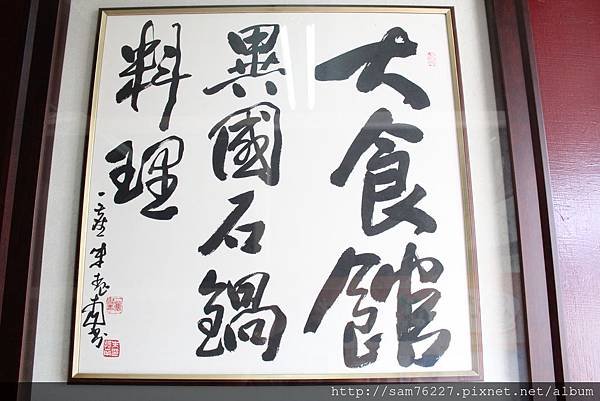 大食館
異國石鍋
料理
http://sam76227.pixnet.net/album